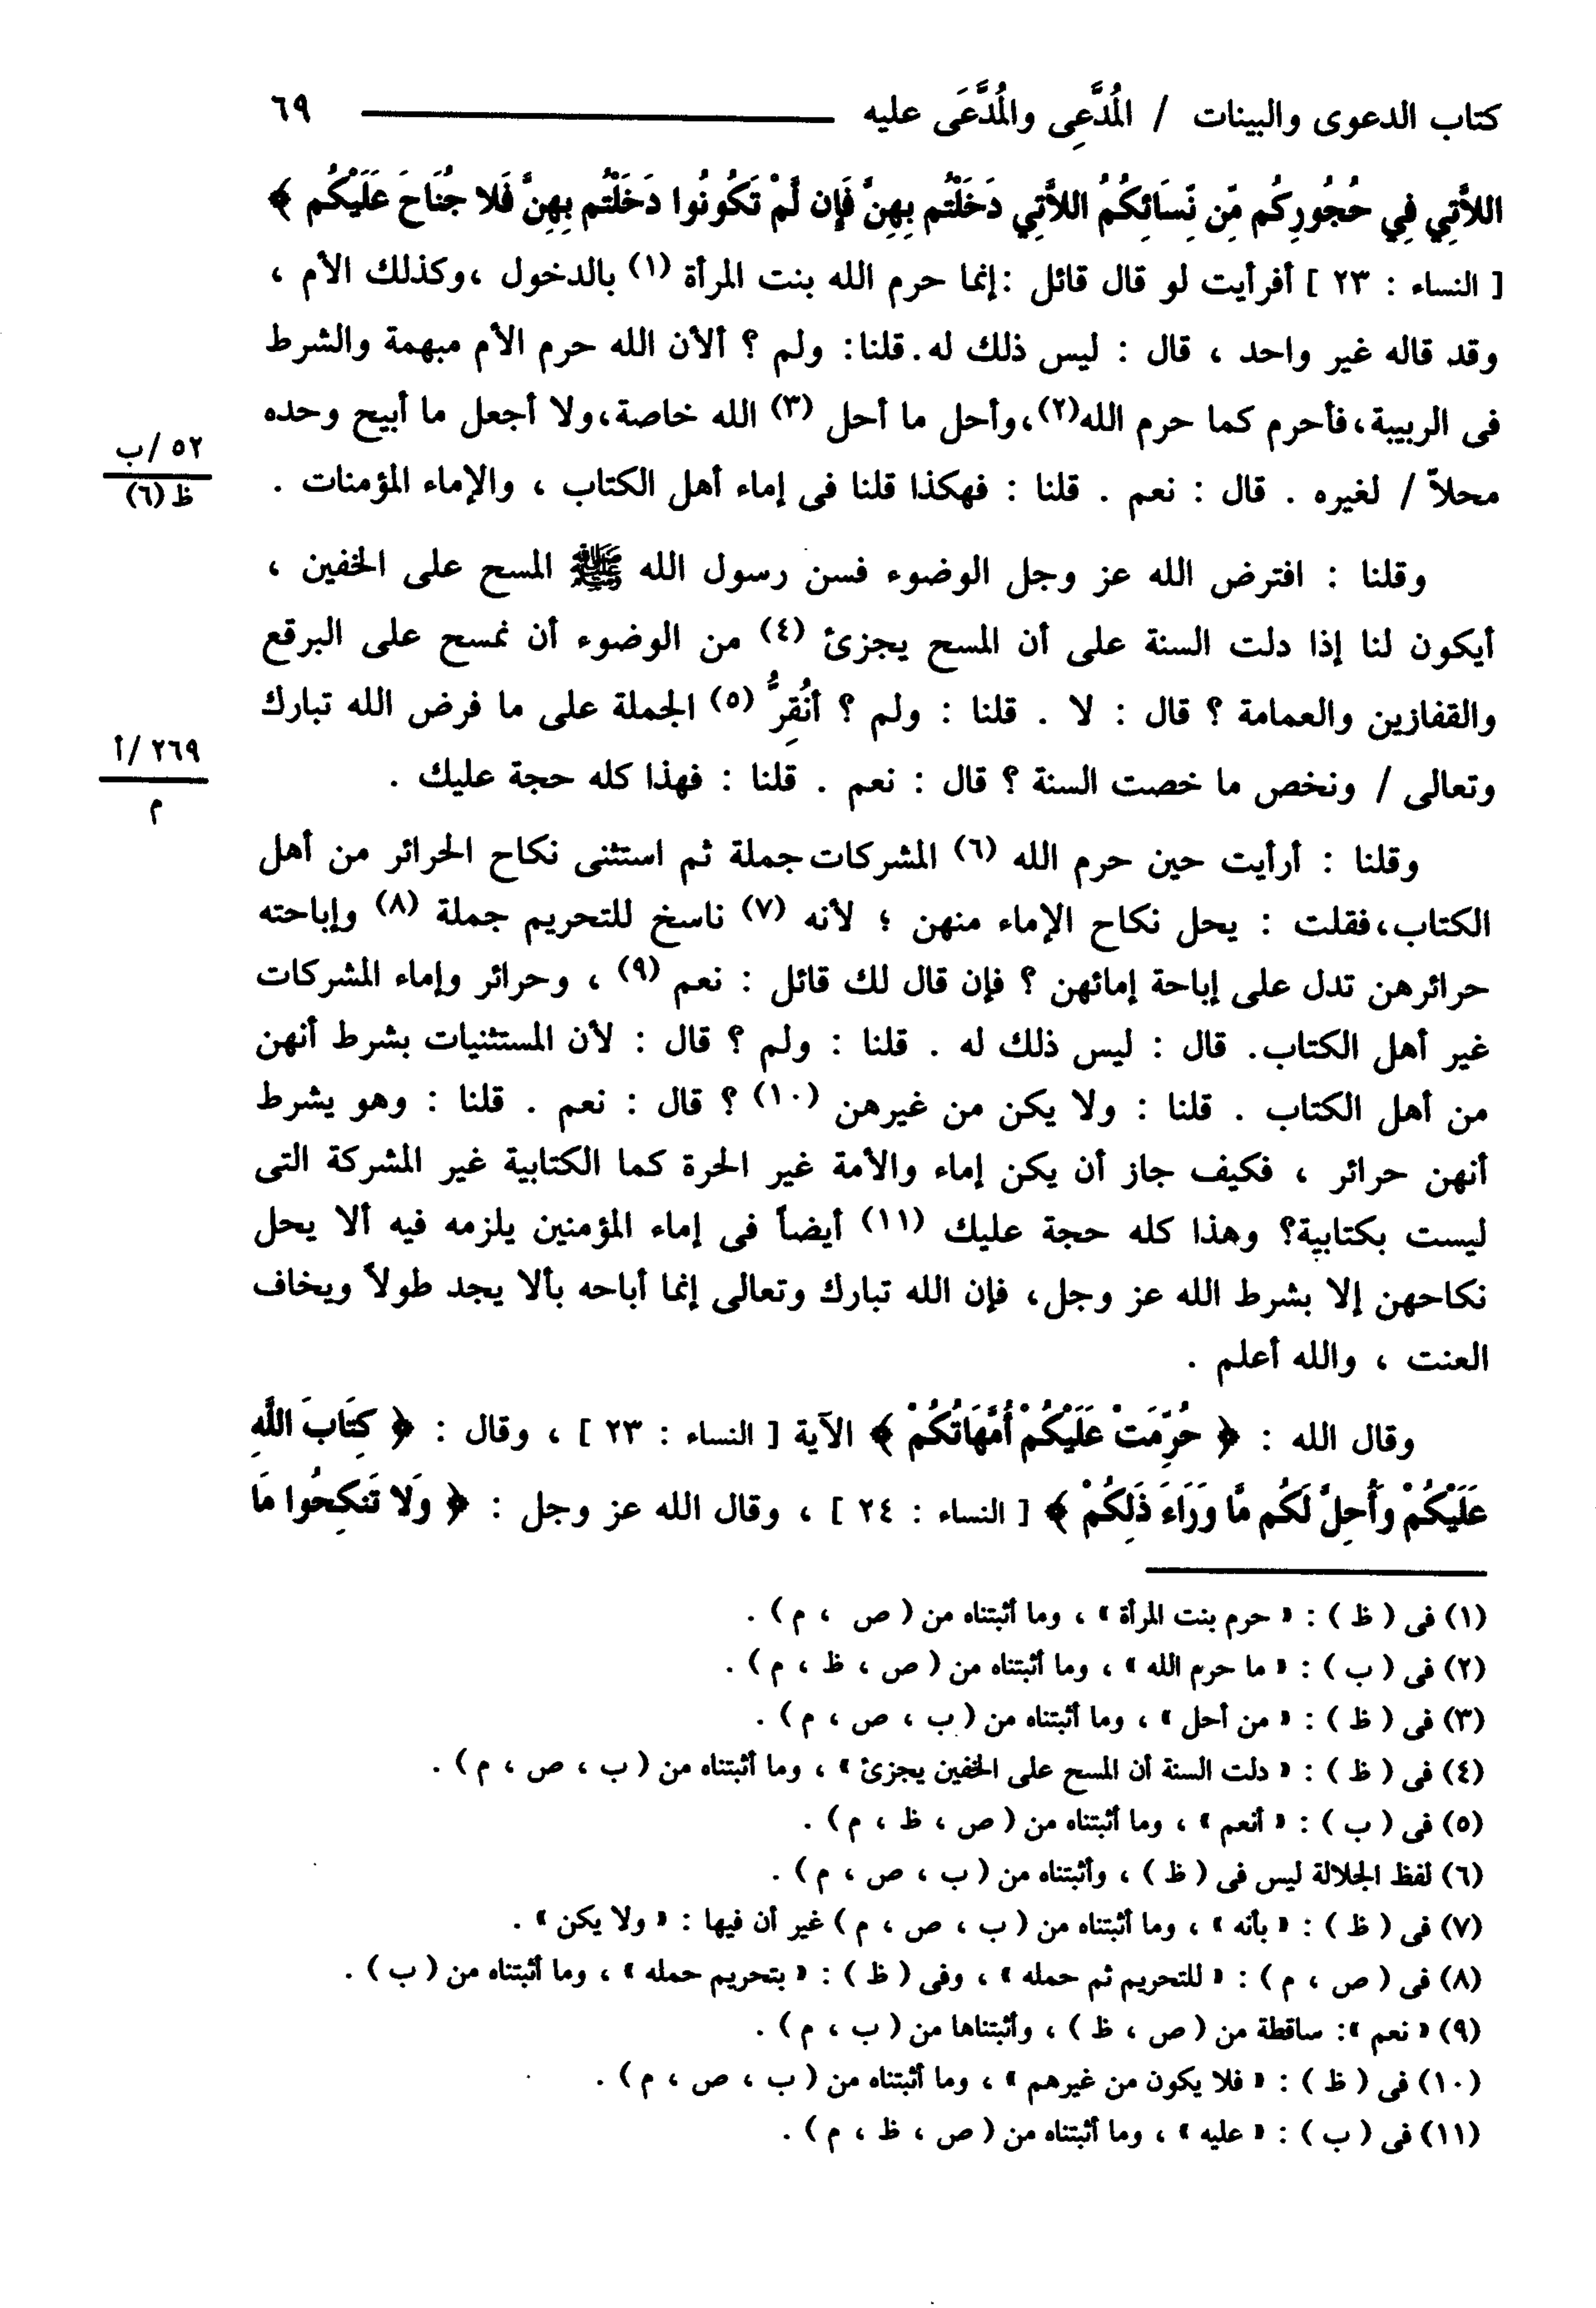 كتاب الدعوى والبينات / المُدَّعِى والمُدَّعَى عليه ٦٩
اللاَّتِي فِي حُجُورِكُم مِّن نِّسَائِكُمُ اللاَّتِي دَخَلْتُم بِهِنَّ فَإِن لَّمْ تَكُونُوا دَخَلْتُم بِهِنَّ فَلا جُنَاحَ عَلَيْكُم ﴾
[ النساء : ٢٣ ] أفرأيت لو قال قائل :إنما حرم الله بنت المرأة (١) بالدخول ،وكذلك الأم ،
وقد قاله غير واحد ، قال : ليس ذلك له .قلنا: ولم ؟ ألأن الله حرم الأم مبهمة والشرط
فى الربيبة،فأحرم كما حرم الله(٢)،وأحل ما أحل (٣) الله خاصة،ولا أجعل ما أبيح وحده
٥٢ /ب
محلاً / لغيره . قال : نعم . قلنا : فهكذا قلنا فى إماء أهل الكتاب ، والإماء المؤمنات .
ظ (٦)
وقلنا : افترض الله عز وجل الوضوء فسن رسول الله ﷺ المسح على الخفين ،
أيكون لنا إذا دلت السنة على أن المسح يجزئ (٤) من الوضوء أن نمسح على البرقع
والقفازين والعمامة ؟ قال : لا . قلنا : ولم ؟ أنُقِرُّ (٥) الجملة على ما فرض الله تبارك
٢٦٩ /أ
وتعالى / ونخص ما خصت السنة ؟ قال : نعم . قلنا : فهذا كله حجة عليك .
م
وقلنا : أرأيت حين حرم الله (٦) المشركات جملة ثم استثنى نكاح الحرائر من أهل
الكتاب،فقلت : يحل نكاح الإماء منهن ؛ لأنه (٧) ناسخ للتحريم جملة (٨) وإباحته
حرائرهن تدل على إباحة إمائهن ؟ فإن قال لك قائل : نعم (٩) ، وحرائر وإماء المشركات
غير أهل الكتاب. قال : ليس ذلك له . قلنا : ولم ؟ قال : لأن المستثنيات بشرط أنهن
من أهل الكتاب . قلنا : ولا يكن من غيرهن (١٠) ؟ قال : نعم . قلنا : وهو يشرط
أنهن حرائر ، فكيف جاز أن يكن إماء والأمة غير الحرة كما الكتابية غير المشركة التى
ليست بكتابية؟ وهذا كله حجة عليك (١١) أيضاً فى إماء المؤمنين يلزمه فيه ألا يحل
نكاحهن إلا بشرط الله عز وجل، فإن الله تبارك وتعالى إنما أباحه بألا يجد طولاً ويخاف
العنت ، والله أعلم .
وقال الله : ﴿ حُرِّمَتْ عَلَيْكُمْ أُمَّهَاتُكُمْ ﴾ الآية [ النساء : ٢٣ ] ، وقال : ﴿ كِتَابَ اللَّهِ
عَلَيْكُمْ وَأُحِلَّ لَكُم مَّا وَرَاءَ ذَلِكُمْ ﴾ [ النساء : ٢٤ ] ، وقال الله عز وجل : ﴿ وَلا تَنكِحُوا مَا
(١) فى ( ظ ) : « حرم بنت المرأة » ، وما أثبتناه من ( ص ، م ) .
(٢) فى ( ب ) : « ما حرم الله » ، وما أثبتناه من ( ص ، ظ ، م ) .
(٣) فى ( ظ ) : « من أحل » ، وما أثبتناه من ( ب ، ص ، م ) .
(٤) فى ( ظ ) : « دلت السنة أن المسح على الخفين يجزئ » ، وما أثبتناه من ( ب ، ص ، م ) .
(٥) فى ( ب ) : « أنعم » ، وما أثبتناه من ( ص ، ظ ، م ) .
(٦) لفظ الجلالة ليس فى ( ظ ) ، وأثبتناه من ( ب ، ص ، م ) .
(٧) فى ( ظ ) : « بأنه » ، وما أثبتناه من ( ب ، ص ، م ) غير أن فيها : « ولا يكن » .
(٨) فى ( ص ، م ) : « للتحريم ثم حمله » ، وفى ( ظ ) : « بتحريم حمله » ، وما أثبتناه من ( ب ) .
(٩) « نعم »: ساقطة من ( ص ، ظ ) ، وأثبتناها من ( ب ، م ) .
(١٠) فى ( ظ ) : « فلا يكون من غيرهم » ، وما أثبتناه من ( ب ، ص ، م ) .
(١١) فى ( ب ) : « عليه » ، وما أثبتناه من ( ص ، ظ ، م ) .